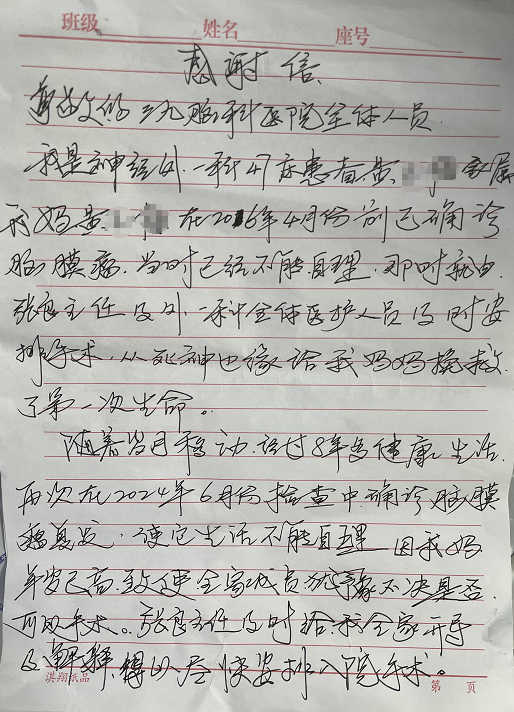 班级 姓名 座号
感谢信
尊敬的三九脑科医院全体人员
我是神经外一科47床患者黄 家属
我妈黄 在2016年4月份别已确诊
脑膜瘤.当时已经不能自理.那时就由
张良主任及外一科全体医护人员及时安
排手术,从死神边缘给我妈妈挽救
了第一次生命。
随着岁月移动.经过8年多健康生活.
再次在2024年6月份检查中确诊脑膜
瘤复发,使它生活不能自理 因我妈
年岁已高,致使全家成员犹豫不决是否
可以手术。张良主任及时给我全家开导
及 尽快安排入院手术。
洪翔纸品 第 页